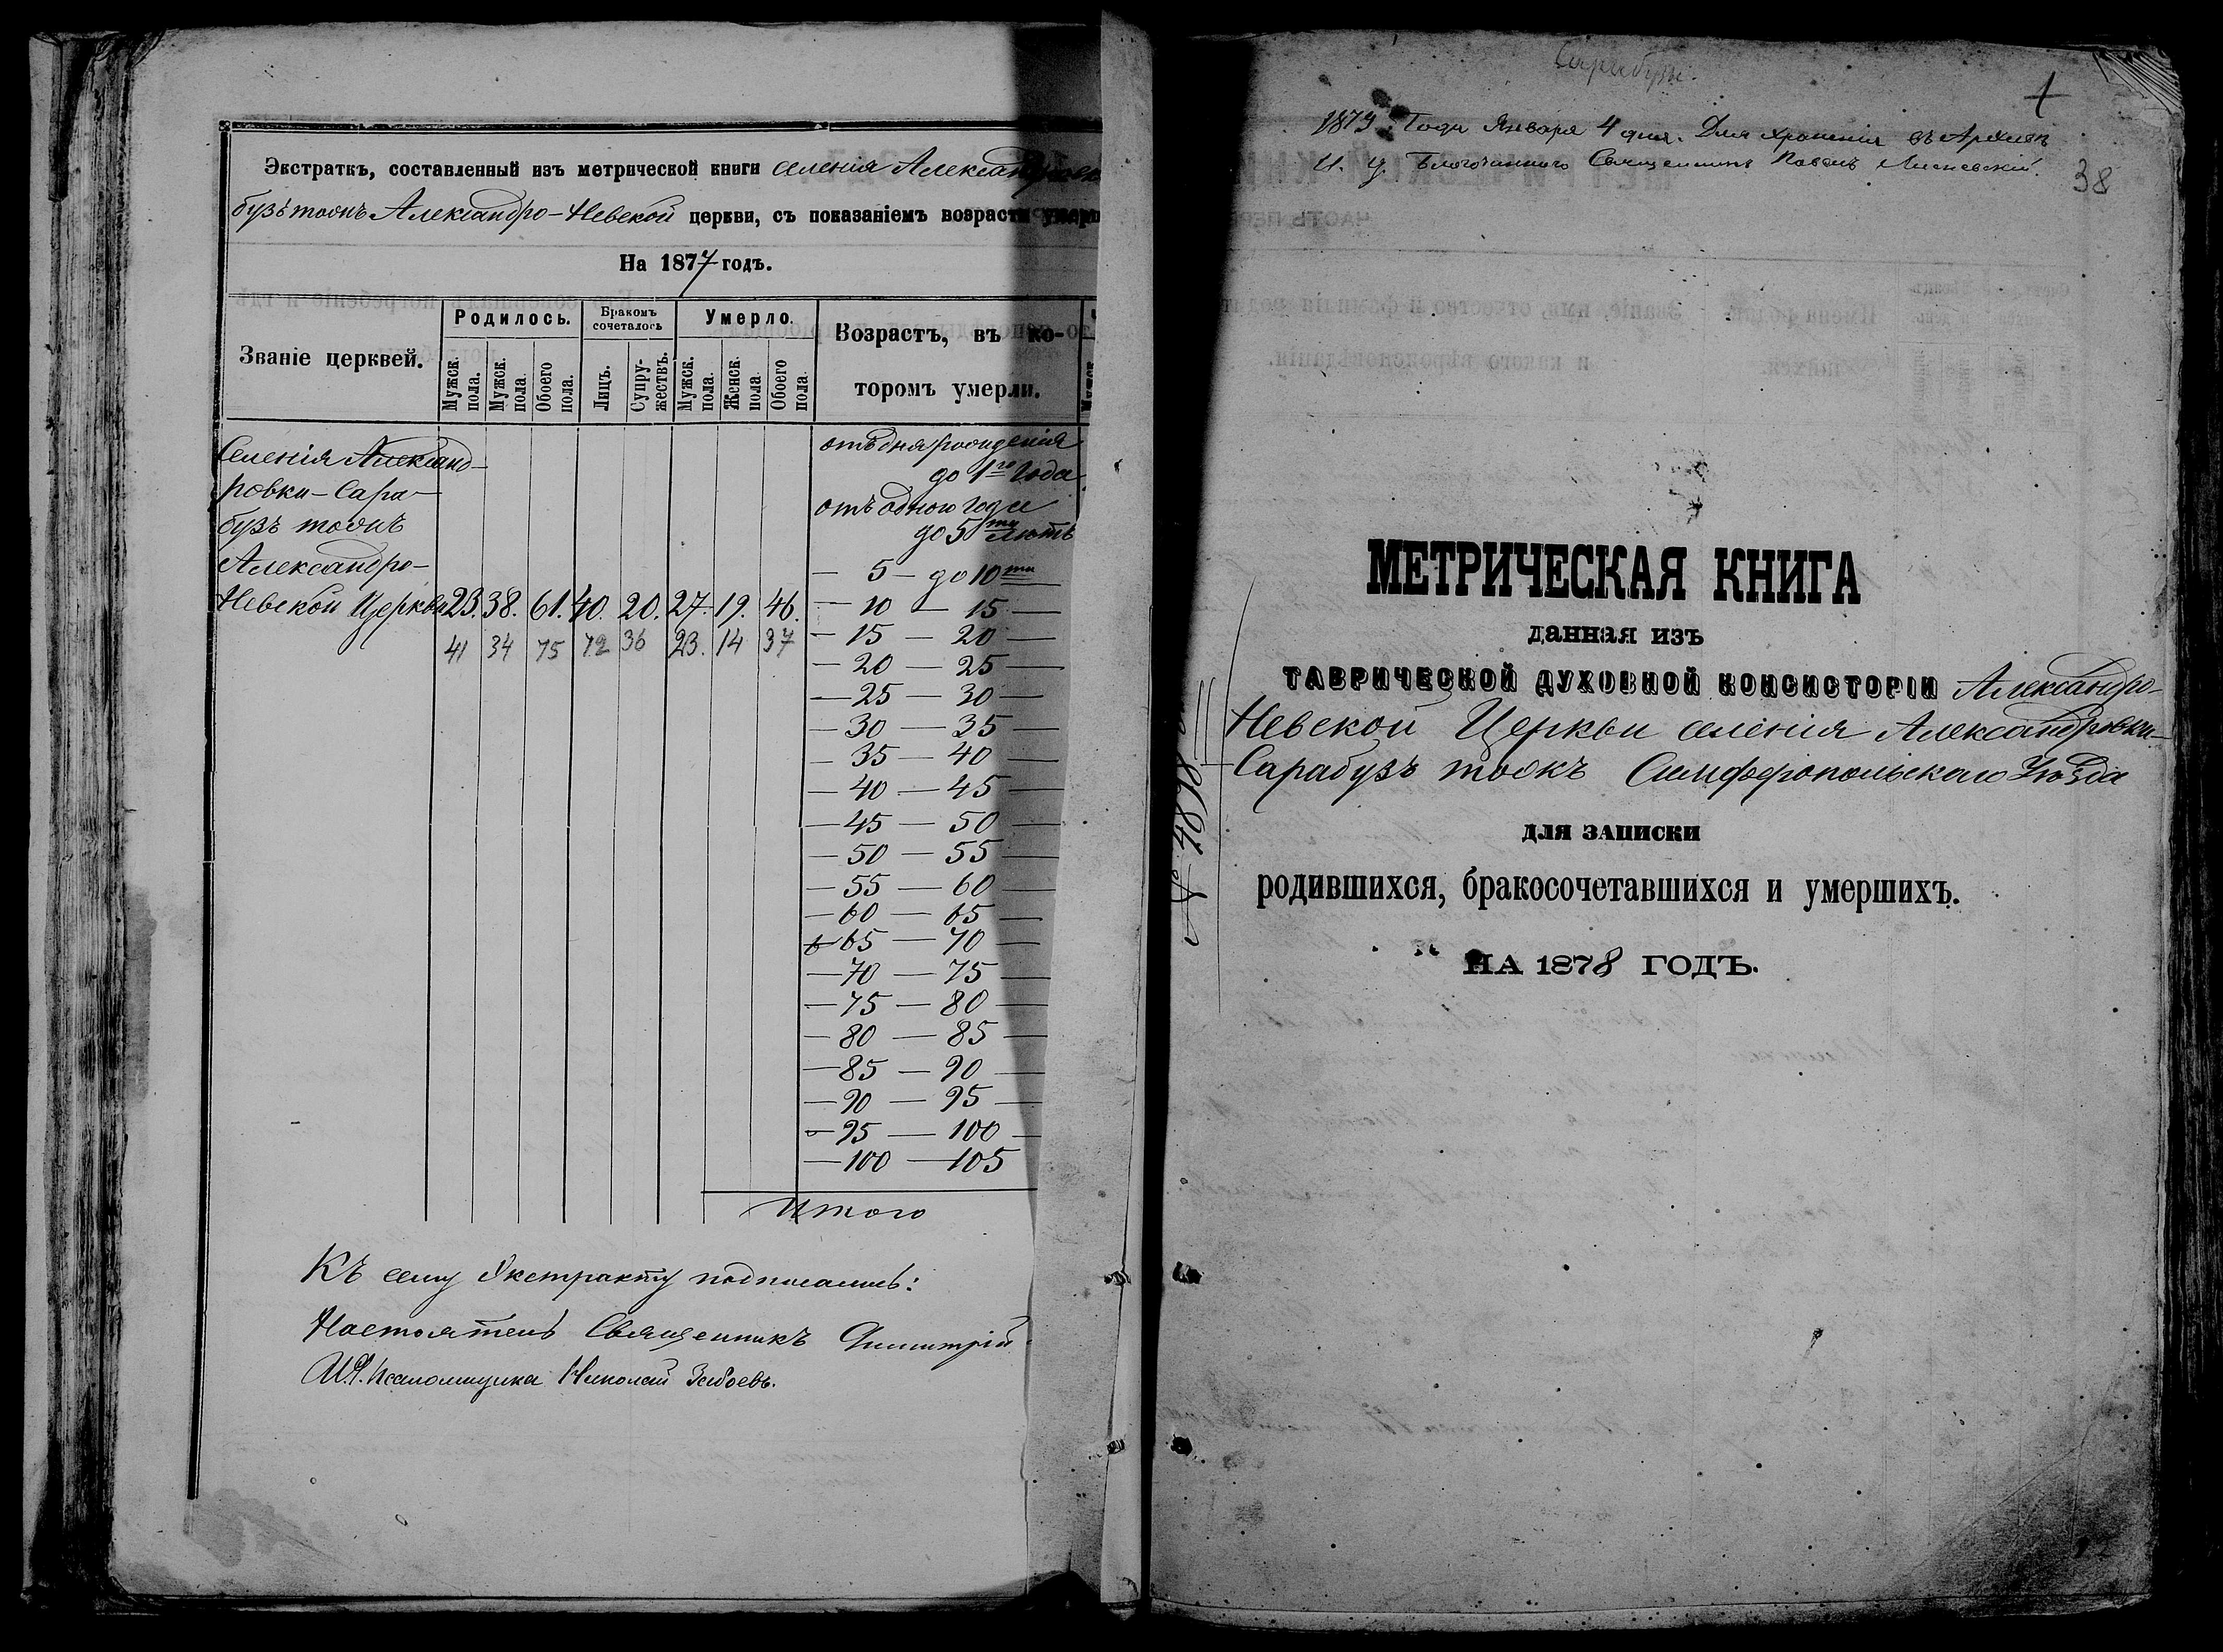 Экстрактъ, составленный изъ метрической книги селенія Александровки
бузъ токъ Александро-Невской церкви, съ показаніемъ возраста умерш
На 1877 годъ.
Званіе церквей.
Родилось.
Бракомъ сочеталось
Умерло.
Возрастъ, въ ко-
торомъ умерли.
Мужск. пола.
Мужск. пола
Обоего пола.
Лицъ.
Супру-жествъ.
Мужск. пола.
Женск. пола
Обоего пола
Селенія Александ-
ровки-Сара-
бузъ токъ
Александро-
Невской Церкви 23. 38. 61. 40. 20. 27. 19. 46.
41 34 75 72 36 23. 14 37
отъ дня рожденія
до 1го года
отъ одного года
до 5ти лѣтъ
— 5 — до 10ти
— 10 — 15 —
— 15 — 20 —
— 20 — 25 —
— 25 — 30 —
— 30 — 35 —
— 35 — 40 —
— 40 — 45 —
— 45 — 50 —
— 50 — 55 —
— 55 — 60 —
— 60 — 65 —
— 65 — 70 —
— 70 — 75 —
— 75 — 80 —
— 80 — 85 —
— 85 — 90 —
— 90 — 95 —
— 95 — 100 —
— 100 — 105
Итого
Къ сему Экстракту подписались:
Настоятель Священникъ Димитрій
И.Д. Псаломщика Николай
Сарабузы.
1879 Года Января 4 дня. Для храненія въ Архивъ
И. д. Благочиннаго Священникъ Павелъ
38
МЕТРИЧЕСКАЯ КНИГА
данная изъ
ТАВРИЧЕСКОЙ ДУХОВНОЙ КОНСИСТОРІИ Александро-
Невской Церкви селенія Александровки-
Сарабузъ токъ Симферопольскаго Уѣзда
для записки
родившихся, бракосочетавшихся и умершихъ.
НА 1878 ГОДЪ.